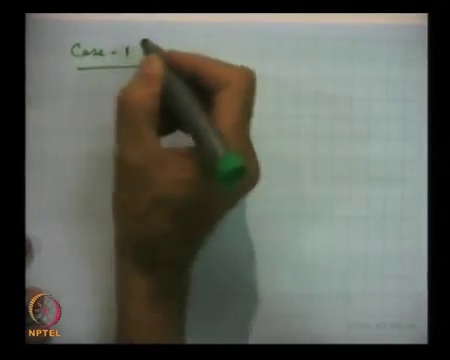 Case - 1
NPTEL